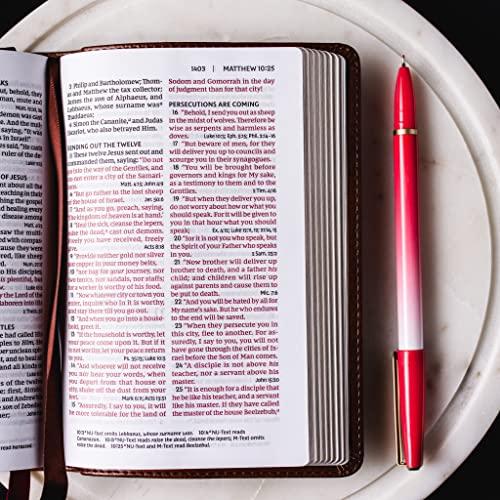 AKS
behold,
man, mute
and when
out, the
multitudes
saying, "It
in Israel!"
said, "He
OF JESUS
about all
teaching in their
gospel
healing
every dis-
the mul-
with com-
cause they
red, like
Then
sciples,
is plentiful, but
the Lord of the
laborers into
TLES
had called His
He
over unclean
and to
and all
twelve
these: first,
and Andrew
of Zebedee,
1403 | MATTHEW 10:25
3 Philip and Bartholomew; Thom-
as and Matthew the tax collector;
James the son of Alphaeus, and
Lebbaeus, whose surname was*
Thaddaeus;
4 Simon the Cananite,* and Judas
Iscariot, who also betrayed Him.
SENDING OUT THE TWELVE
5 These twelve Jesus sent out and
commanded them, saying: "Do not
go into the way of the Gentiles, and
do not enter a city of the Samari-
tans. Matt. 4:15; John 4:9
6 "But go rather to the lost sheep
of the house of Israel. Jer. 50:6
7 "And as you go, preach, saying,
'The kingdom of heaven is at hand.'
8 "Heal the sick, cleanse the lepers,
raise the dead,* cast out demons.
Freely you have received, freely
give. Acts 8:18
9 "Provide neither gold nor silver
nor copper in your money belts,
10 "nor bag for your journey, nor
two tunics, nor sandals, nor staffs;
for a worker is worthy of his food.
11 "Now whatever city or town you
enter, inquire who in it is worthy,
and stay there till you go out.
12 "And when you go into a house-
hold, greet it.
13 "If the household is worthy, let
your peace come upon it. But if it
is not worthy, let your peace return
to you. Ps. 35:13; Luke 10:5
14 "And whoever will not receive
you nor hear your words, when
you depart from that house or
city, shake off the dust from your
feet. Mark 6:11; Acts 13:51
15 "Assuredly, I say to you, it will
be more tolerable for the land of
Sodom and Gomorrah in the day
of judgment than for that city!
PERSECUTIONS ARE COMING
16 "Behold, I send you out as sheep
in the midst of wolves. Therefore be
wise as serpents and harmless as
doves. Luke 10:3; Eph. 5:15; Phil. 2:14–16
17 "But beware of men, for they
will deliver you up to councils and
scourge you in their synagogues.
18 "You will be brought before
governors and kings for My sake,
as a testimony to them and to the
Gentiles. 2 Tim. 4:16
19 "But when they deliver you up,
do not worry about how or what you
should speak. For it will be given to
you in that hour what you should
speak; Ex. 4:12; Luke 12:11, 12; 21:14, 15
20 "for it is not you who speak, but
the Spirit of your Father who speaks
in you. 2 Sam. 23:2
21 "Now brother will deliver up
brother to death, and a father his
child; and children will rise up
against parents and cause them to
be put to death. Mic. 7:6
22 "And you will be hated by all for
My name's sake. But he who endures
to the end will be saved.
23 "When they persecute you in
this city, flee to another. For as-
suredly, I say to you, you will not
have gone through the cities of Is-
rael before the Son of Man comes.
24 "A disciple is not above his
teacher, nor a servant above his
master. John 15:20
25 "It is enough for a disciple that
he be like his teacher, and a servant
like his master. If they have called
the master of the house Beelzebub,*
10:3 *NU-Text omits Lebbaeus, whose surname was. 10:4 *NU-Text reads
Cananaean. 10:8 *NU-Text reads raise the dead, cleanse the lepers; M-Text omits
raise the dead. 10:25 *NU-Text and M-Text read Beelzebul.